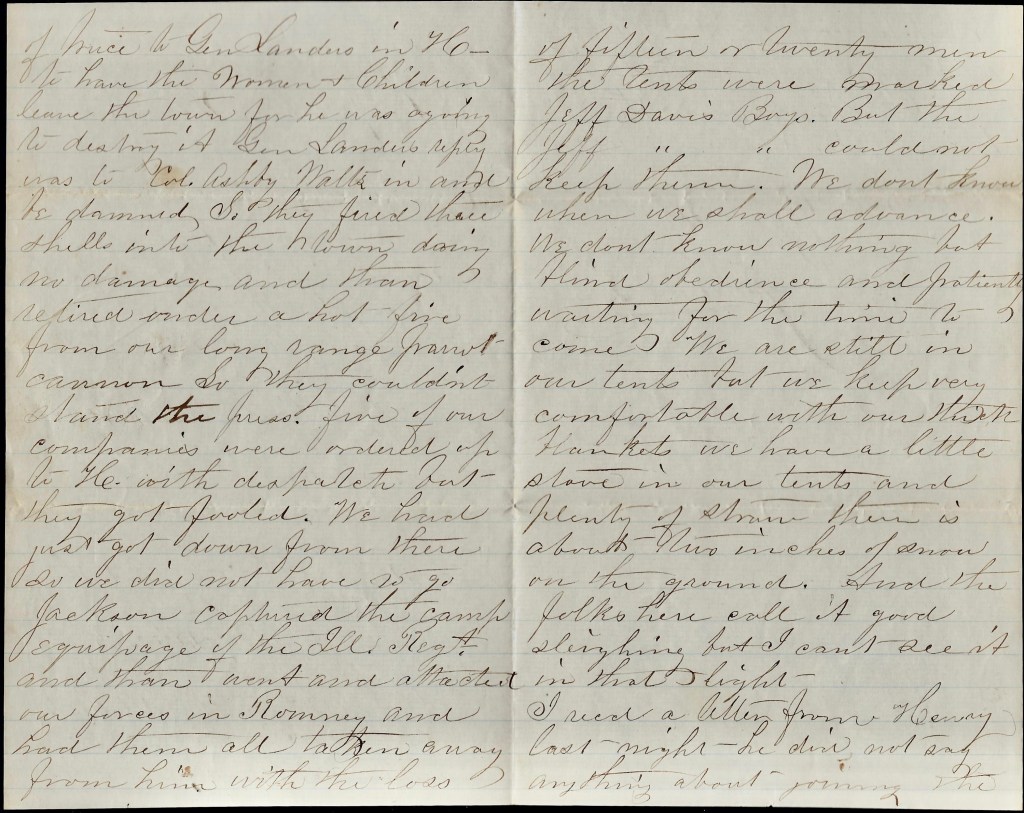 of truce to Gen Landers in H—
to have the Women & Children
leave the town for he was agoing
to destroy it Gen Landers reply
was to Col. Ashby Walk in and
be damned, So they fired three
shells into the town doing
no damage and than
retired under a hot fire
from our long range parrot
cannon So they couldn't
stand the press. five of our
companies were ordered up
to H. with despatch but
they got fooled. We had
just got down from there
so we did not have to go
Jackson captured the camp
equipage of the Ill. Regt
and than went and attacted
our forces in Romney and
had them all taken away
from him with the loss
of fifteen or twenty men
the tents were marked
Jeff Davis Boys. But the
Jeff " " could not
keep them. We dont know
when we shall advance.
We dont know nothing but
blind obedience and patiently
waiting for the time to
come. We are still in
our tents but we keep very
comfortable with our thick
blankets we have a little
stove in our tents and
plenty of straw there is
about two inches of snow
on the ground. And the
folks here call it good
sleighing but I cant see it
in that light
I recd a letter from Henry
last night he did not say
anything about joining the